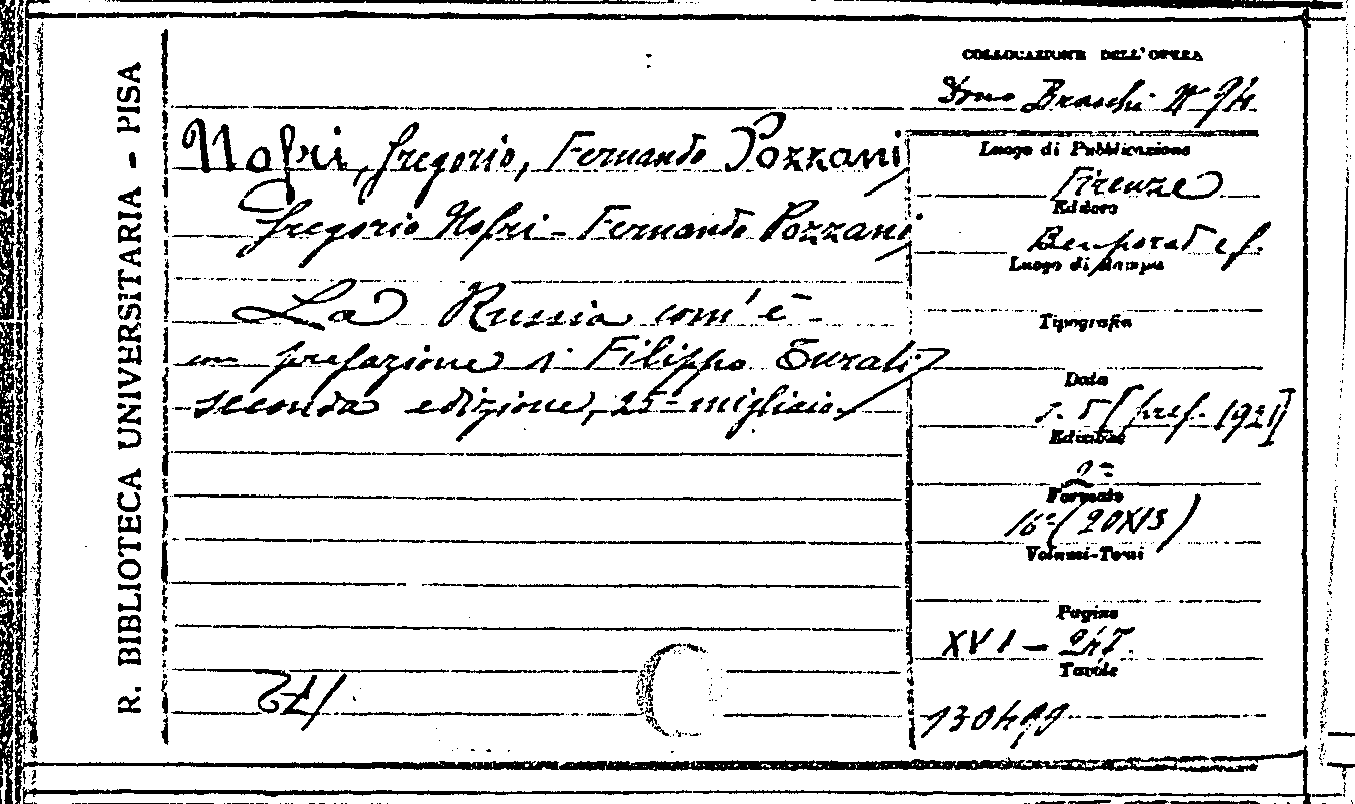 R. BIBLIOTECA UNIVERSITARIA - PISA
COLLOCAZIONE DELL'OPERA
Dono Braschi N° 94
Nofri, Gregorio, Fernando Pozzani
Gregorio Nofri - Fernando Pozzani
La Russia com'è -
con prefazione di Filippo Turati
seconda edizione, 25° migliaio
Luogo di Pubblicazione
Firenze
Editore
Bemporad e f.
Luogo di Stampa
Tipografia
Data
s. d. [pref. 1921]
Edizione
2ª
Formato
16° (20X13)
Volumi-Tomi
Pagine
XVI - 247.
Tavole
130499